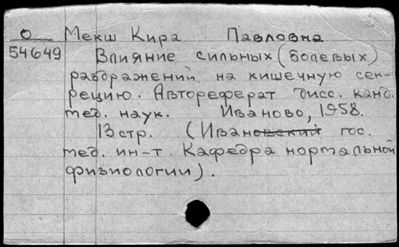 О Мекш Кира Павловна
54649 Влияние сильных (болевых)
раздражений на кишечную сек-
рецию. Автореферат дисс. канд.
мед. наук. Иваново, 1958.
13 стр. (Ивановский гос.
мед. ин-т. Кафедра нормальной
физиологии).